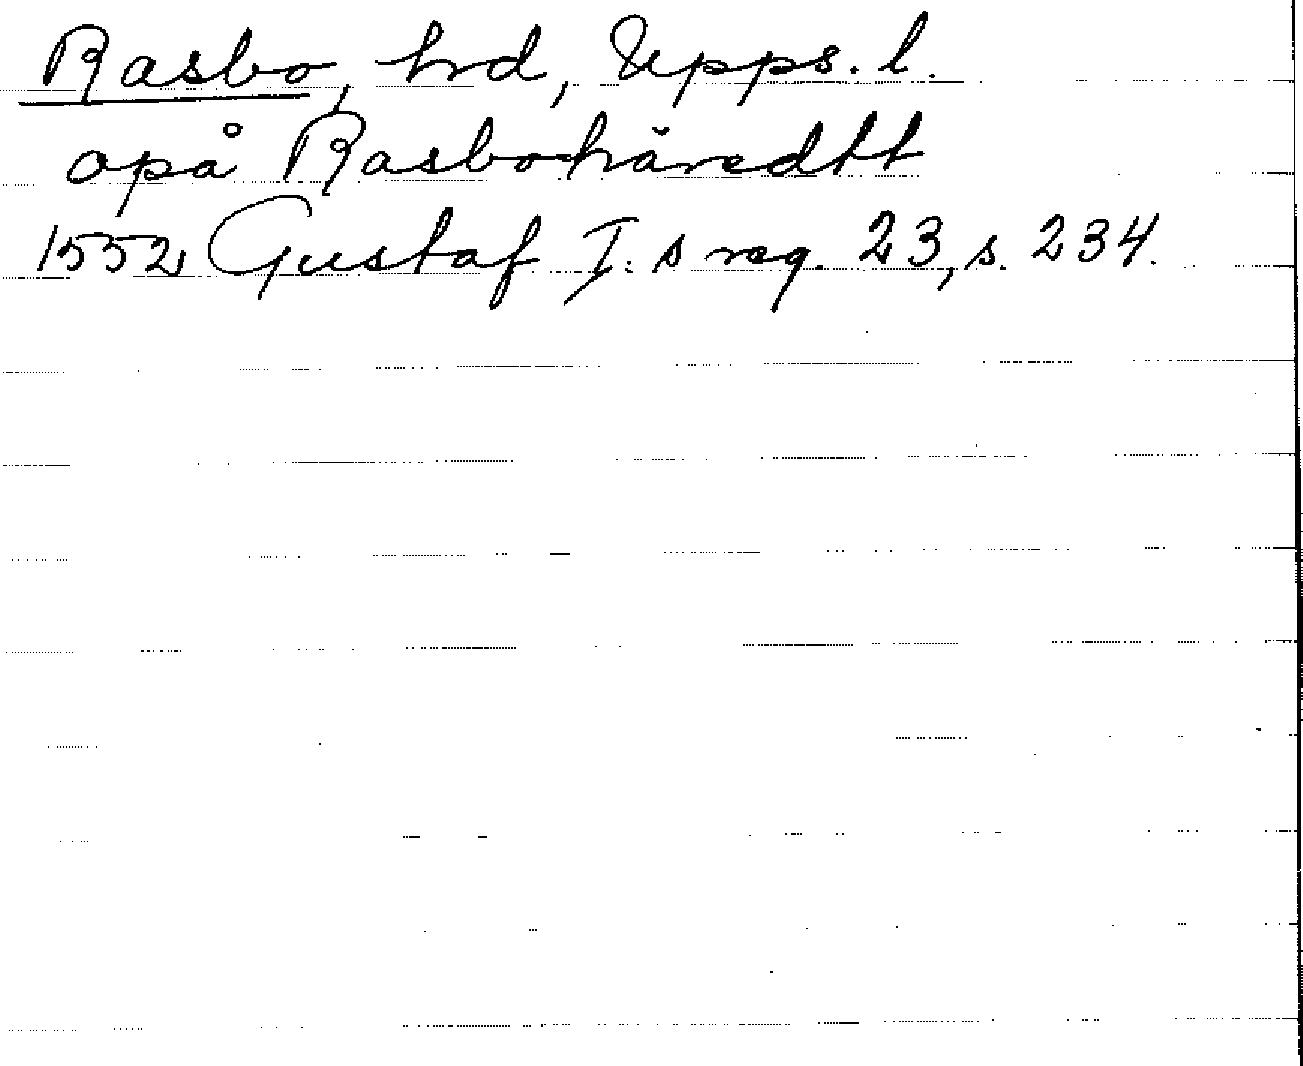 Rasbo, hrd, Upps. l.
opå Rasbohäredtt
1552 Gustaf I:s reg. 23, s. 234.